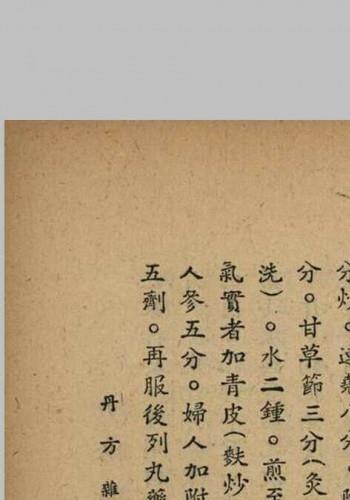 分炒。遠
分。甘草節三分(灸
洗)。水二鍾。煎至
氣實者加青皮(麩炒
人參五分。婦人加
五劑。再服後列丸藥
丹方雜